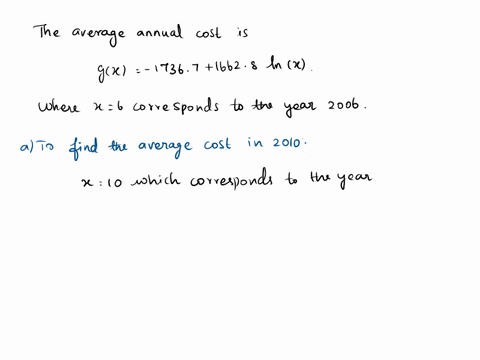 The average annual cost is
g(x) = -1736.7 + 1662.8 ln(x).
Where x=6 corresponds to the year 2006.
a) To find the average cost in 2010.
x=10 which corresponds to the year